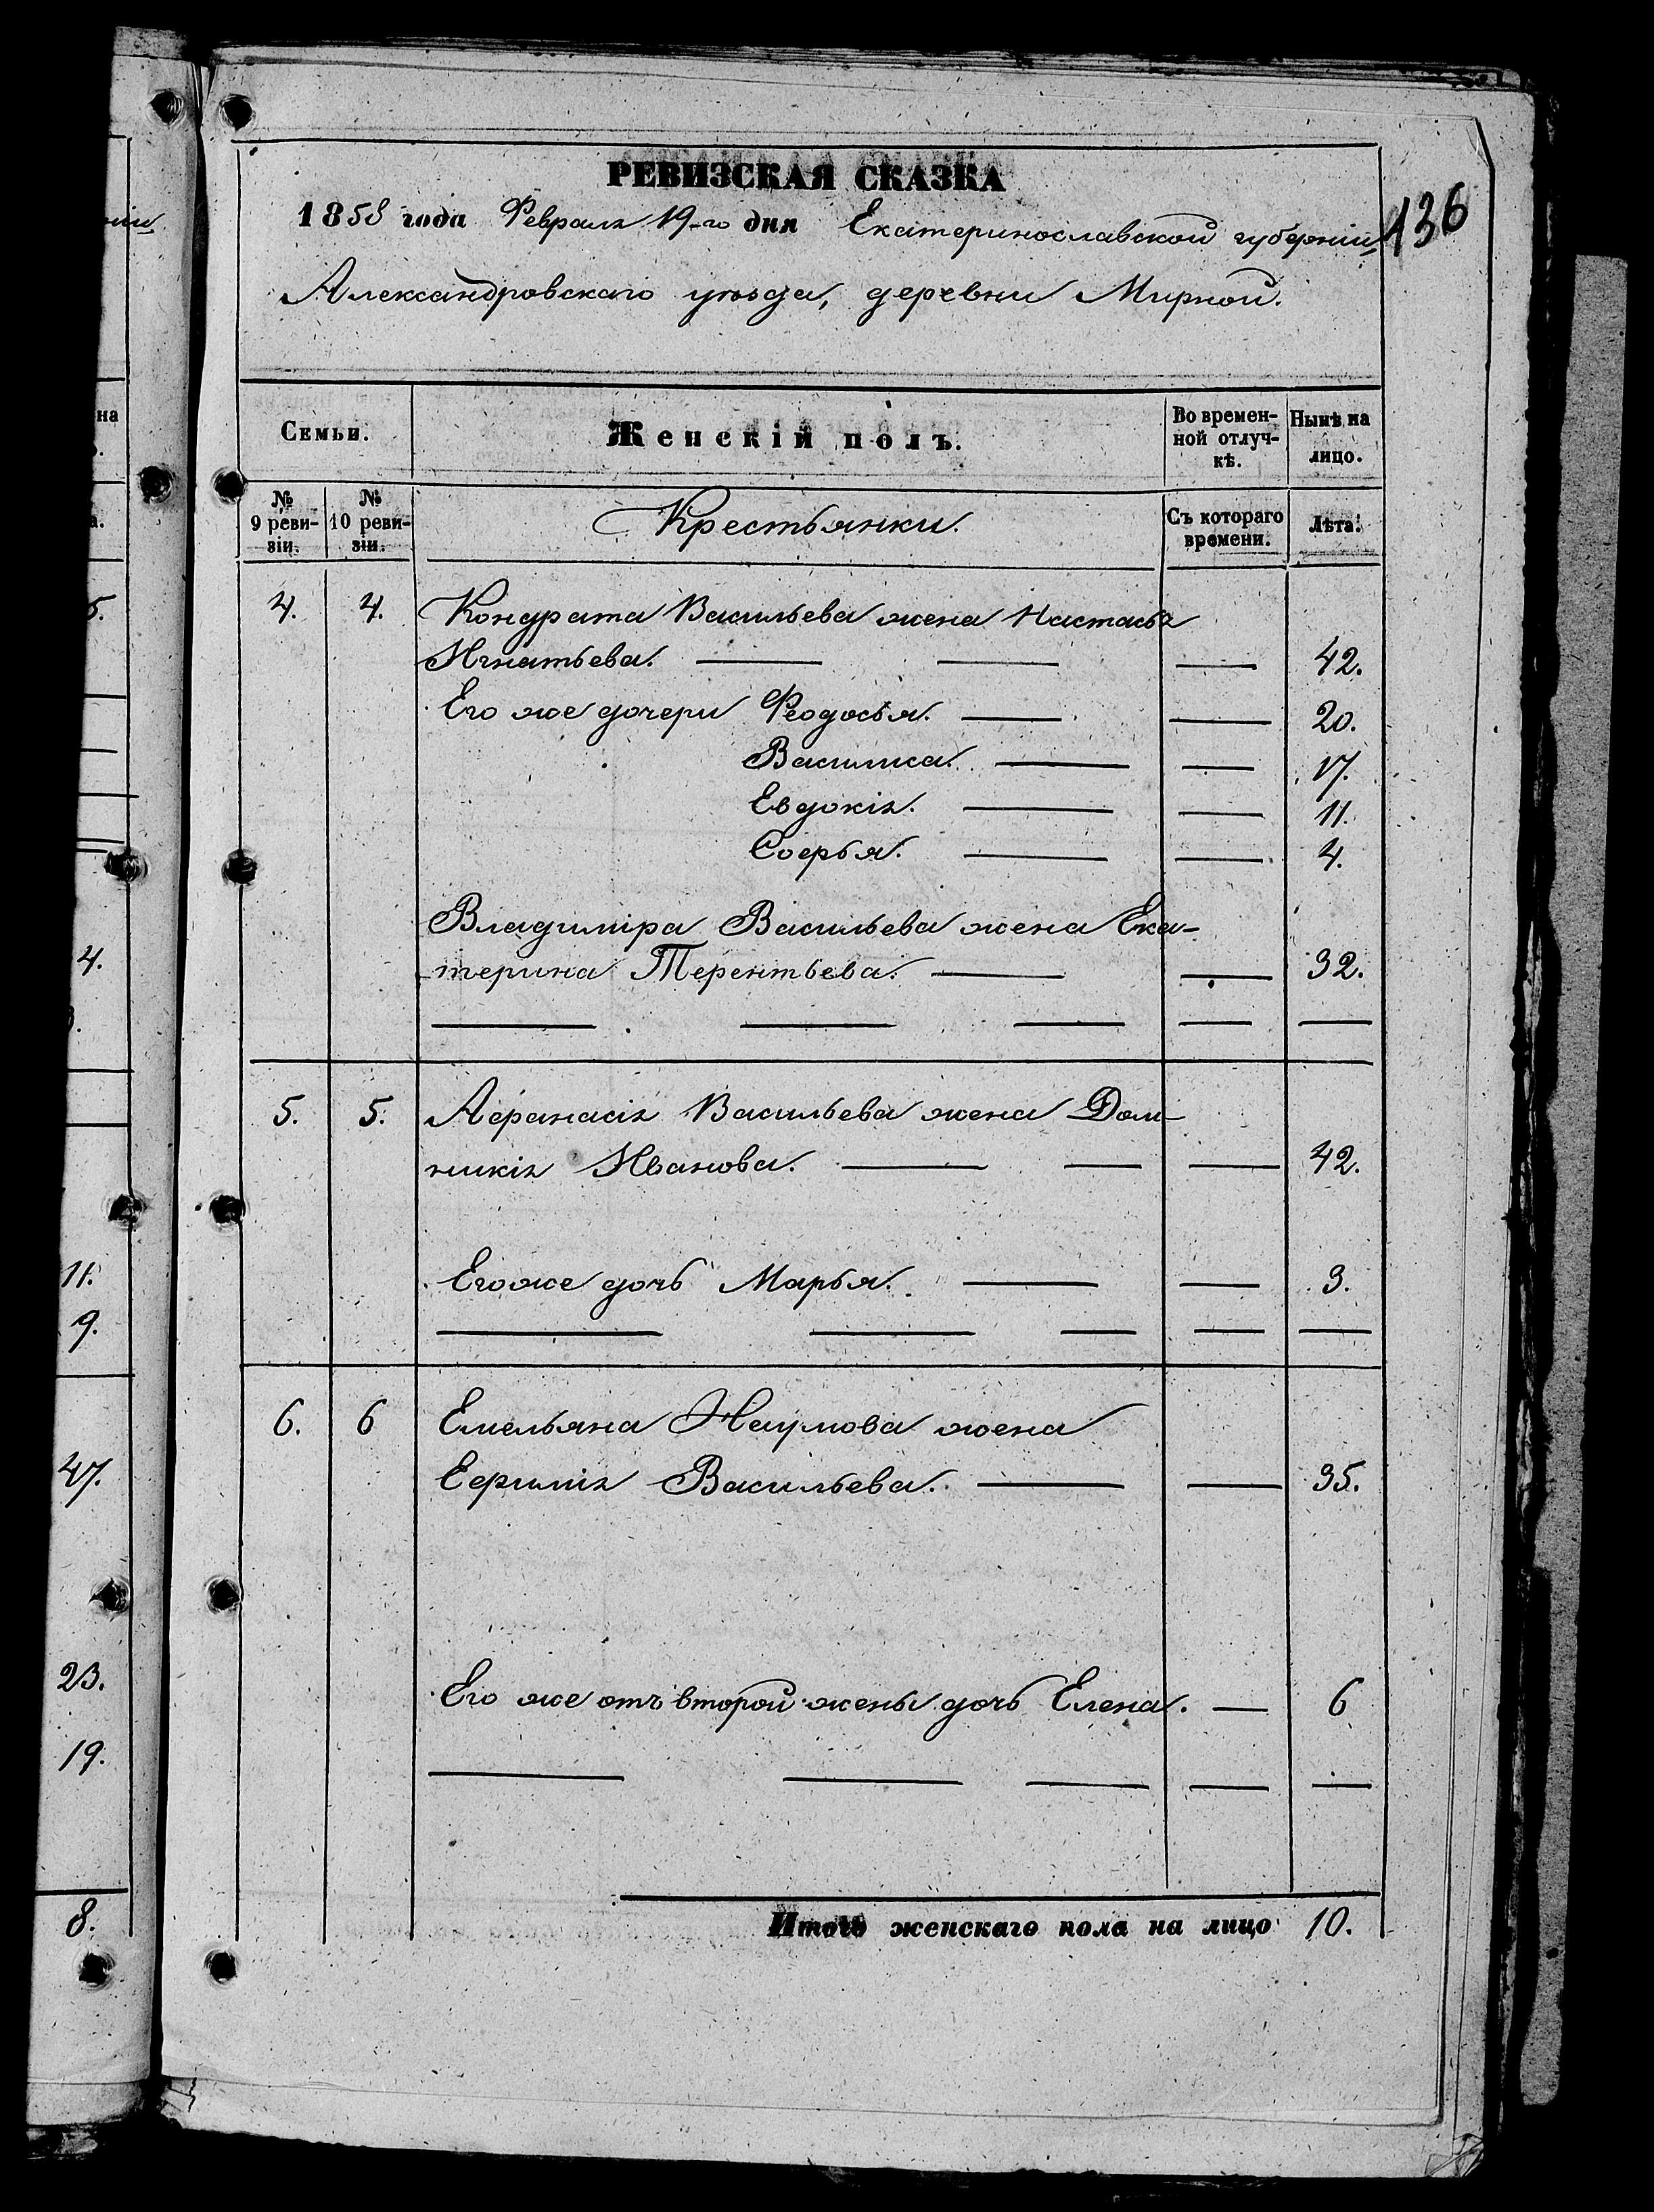 нiи
РЕВИЗСКАЯ СКАЗКА
1858 года Февраля 19-го дня Екатеринославской губернiи,
136
Александровскаго уѣзда, деревни Мирной.
на
Семьи.
Женскiй полъ.
Во времен-
ной отлуч-
кѣ.
Нынѣ на
лицо.
№
9 реви-
зiи.
№
10 реви-
зiи.
Крестьянки.
Съ котораго
времени.
Лѣта.
4. 4. Кондрата Васильева жена Настасья
Игнатьева. — — — 42.
Его же дочери Феодосья. — — 20.
Василиса. — — 17.
Евдокiя. — — 11.
Софья. — — 4.
Владимiра Васильева жена Ека-
терина Терентьева. — — 32.
— — — — —
5. 5. Афанасiя Васильева жена Дом-
никiя Иванова. — — — 42.
Его же дочь Марья. — — 3.
— — — — —
6. 6 Емельяна Наумова жена
Ефимiя Васильева. — — 35.
Его же отъ второй жены дочь Елена. — 6
— — — — —
Итогъ женскаго пола на лицо 10.
5.
4.
11.
9.
47.
23.
19.
8.